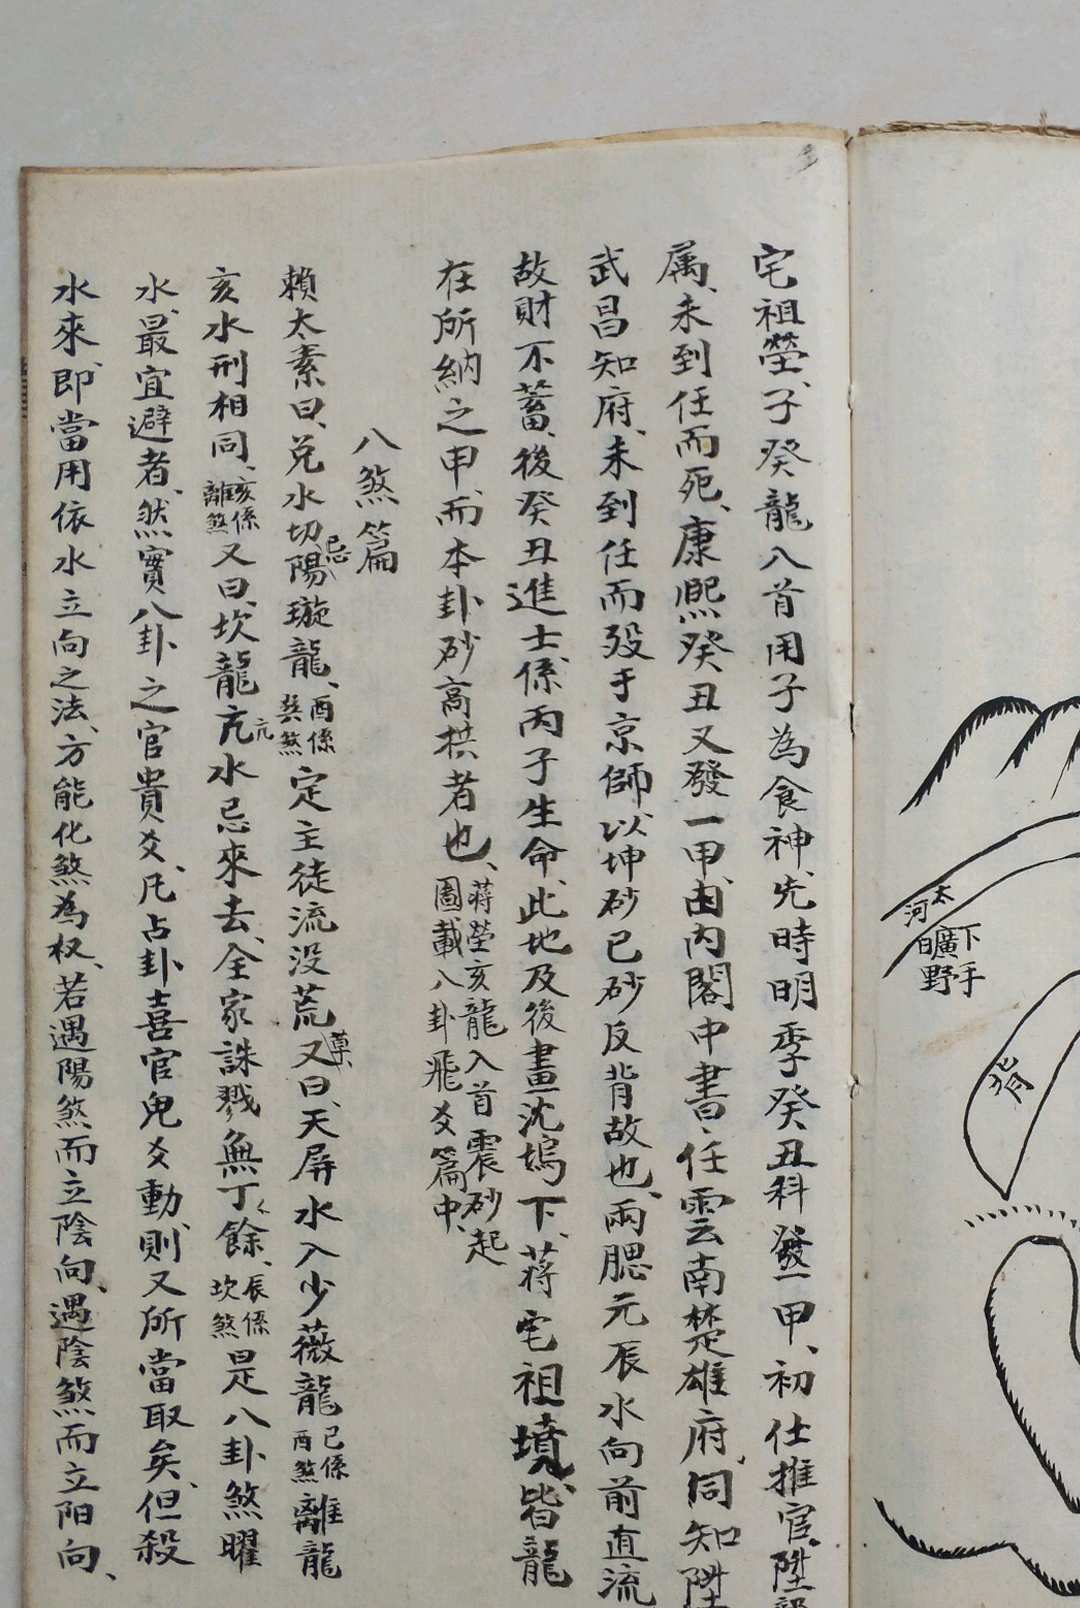 宅祖塋、子癸龍入首用子為食神、先時明季癸丑科發一甲、初仕推官、陞部
属、未到任而死、康熙癸丑又發一甲、由内閣中書、任雲南楚雄府、同知陞
武昌知府、未到任而殁于京師、以坤砂巳砂反背故也、兩腮元辰水向前直流
故財不蓄、後癸丑進士、係丙子生命、此地及後畫沈塢下、蔣宅祖墳、皆龍
在所納之甲、而本卦砂高拱者也、蔣塋亥龍入首震砂起圖載八卦飛爻篇中、
八煞篇
賴太素曰、兌水切忌陽璇龍、酉係巽煞定主徒流没荒草、又曰、天屏水入少薇龍巳係酉煞離龍
亥水刑相同、亥係離煞又曰、坎龍亢亢水忌來去、全家誅戮無丁餘、辰係坎煞是八卦煞曜
水、最宜避者、然實八卦之官貴爻、凡占卦喜官鬼爻動、則又所當取矣、但殺
水來、即當用依水立向之法、方能化煞為权、若遇陽煞而立陰向、遇陰煞而立阳向、
太河
下手
曠野
背